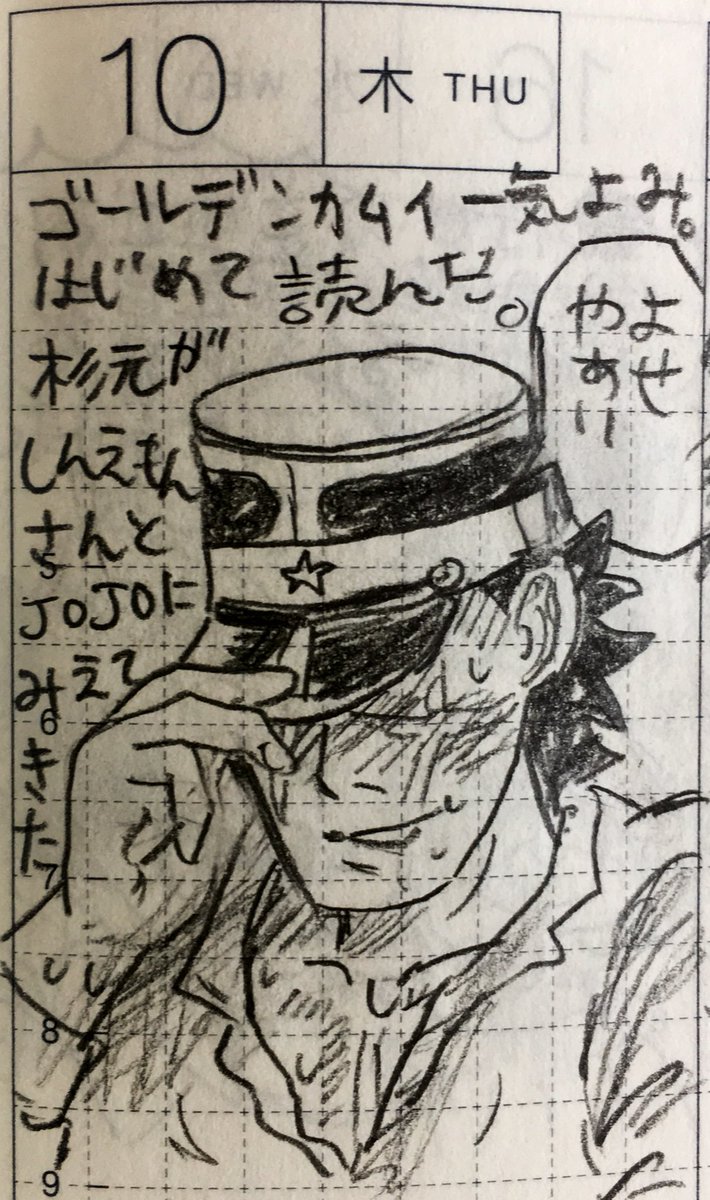 10
木 THU
ゴールデンカムイ一気よみ。
はじめて読んだ。
杉元が
しんえもん
さんと
JOJOに
みえて
きた
よせ
やあい
5
6
7
8
9